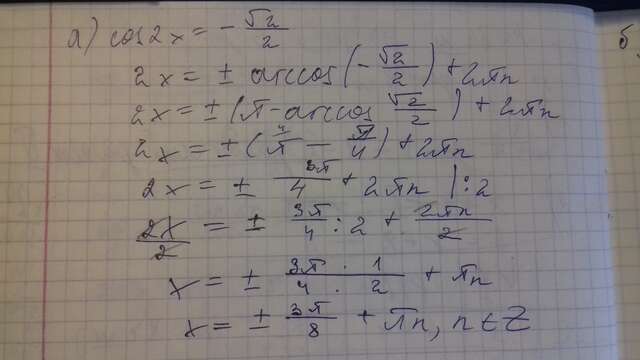 а) cos2x = - √2/2
2x = ± arccos(- √2/2) + 2πn
2x = ± (π - arccos √2/2) + 2πn
2x = ± (π^4 - π/4) + 2πn
2x = ± 3π/4 + 2πn |:2
2x/2 = ± 3π/4 : 2 + 2πn/2
x = ± 3π · 1/4 · 2 + πn
x = ± 3π/8 + πn, n ∈ Z
б